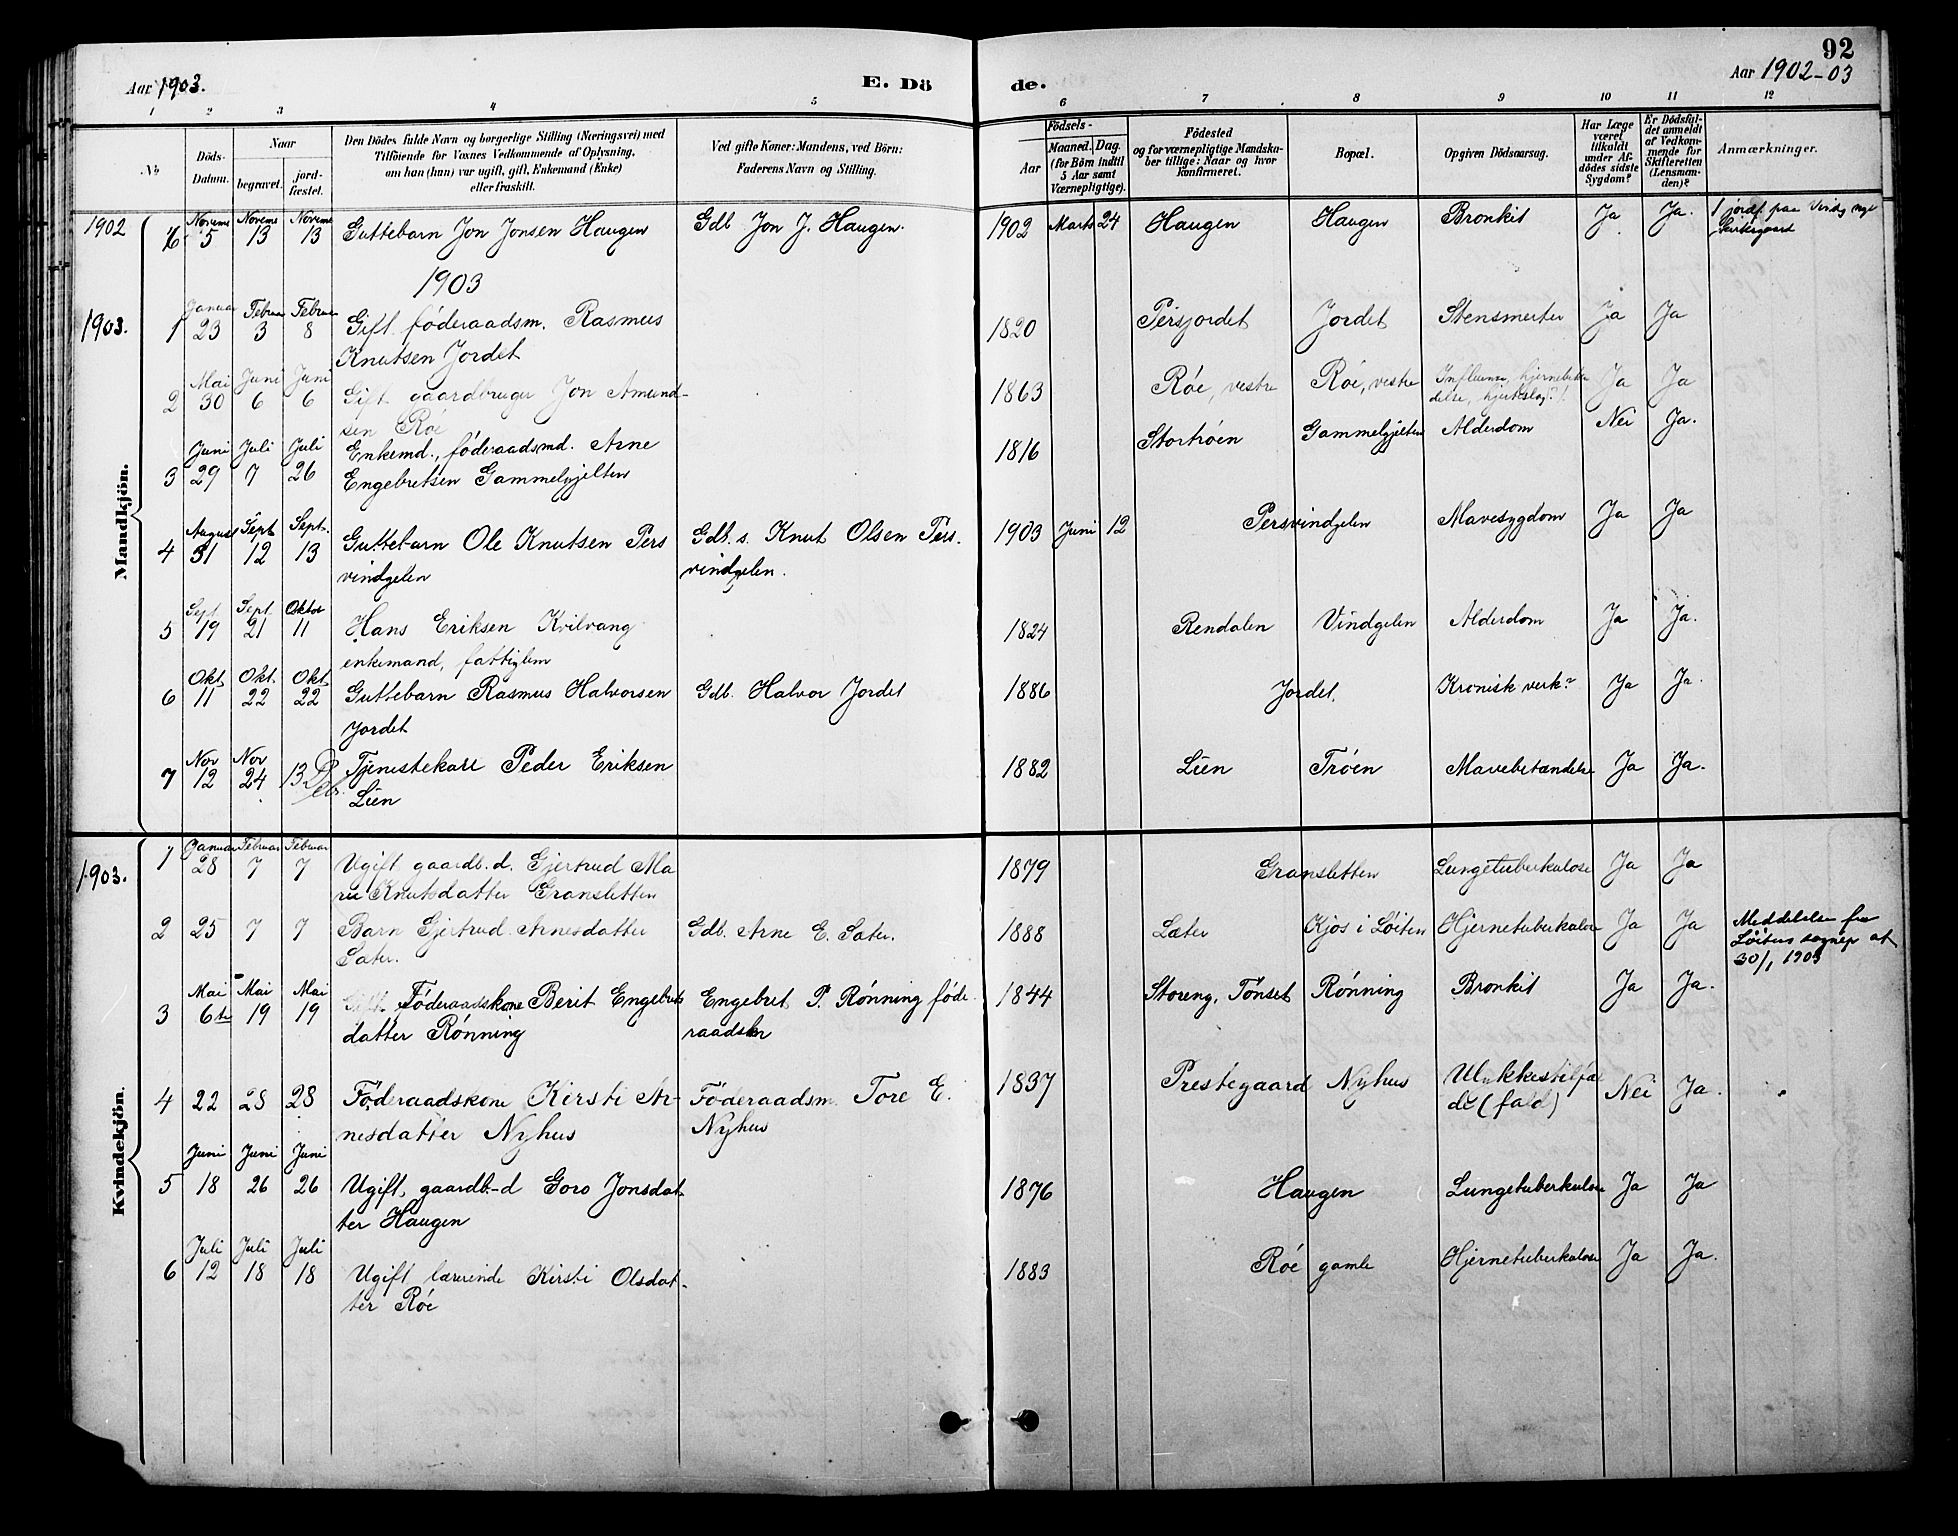 92
Aar 1903.
E. Dö
de.
Aar 1902-03
1 2 3 4 5 6 7 8 9 10 11 12
No
Döds-
Datum.
Naar
begravet.
jord-
fæstet.
Den Dödes fulde Navn og borgerlige Stilling (Næringsvei) med
Tilföiende for Voxnes Vedkommende af Oplysning,
om han (hun) var ugift, gift, Enkemand (Enke)
eller fraskilt.
Ved gifte Koner: Mandens, ved Börn:
Faderens Navn og Stilling.
Födsels-
Aar
Maaned. Dag.
(for Börn indtil
5 Aar samt
Værnepligtige).
Födested
og for værnepligtige Mandska-
ber tillige: Naar og hvor
konfirmeret.
Bopæl.
Opgiven Dödsaarsag.
Har Læge
været
tilkaldt
under Af-
dödes sidste
Sygdom?
Er Dödsfal-
det anmeldt
af Vedkom-
mende for
Skifteretten
(Lensman-
den)?
Anmærkninger.
Mandkjön.
1902 6 Novem 5 Novem 13 Novem 13 Guttebarn Jon Jonsen Haugen Gdb Jon J. Haugen. 1902 Marts 24 Haugen Haugen Bronkit Ja Ja. jordf. paa Vinds nye
Kirkegaard
1903
1903. 1 Januar 23 Februar 3 Februar 8 Gift føderaadsm. Rasmus 1820 Persjordet Jordet Stensmerter Ja Ja
Knutsen Jordet
2 Mai 30 Juni 6 Juni 6 Gift gaardbruger Jon Amund- 1863 Røe, vestre Røe, vestre Influensa, hjernebetæn Ja Ja
sen Røe
delse, hjerteslag?
3 Juni 29 Juli 7 Juli 26 Enkemd., føderaadsmd. Arne 1816 Stortrøen Gammelgjelten Alderdom Nei Ja.
Engebretsen Gammelgjelten
4 August 31 Sept 12 Sept. 13 Guttebarn Ole Knutsen Pers Gdb. s. Knut Olsen Pers. 1903 Juni 12 Persvindgelen Mavesygdom Ja Ja
vindgelen vindgelen.
5 Sept. 19 Sept. 21 Oktob 11 Hans Eriksen Kvilvang 1824 Rendalen Vindgelen Alderdom Ja Ja.
enkemand, fattiglem
6 Okt 11 Okt. 22 Okt 22 Guttebarn Rasmus Halvorsen Gdb. Halvor Jordet 1886 Jordet. Kronisk verk? Ja Ja.
Jordet
7 Nov 12 Nov 24 13 Deb. Tjenestekarl Peder Eriksen 1882 Lien Trøen Mavebetændelse Ja Ja.
Lien
Kvindekjön.
1903. 1 Januar 28 Februar 7 Februar 7 Ugift gaardb. d. Gjertrud Ma 1879 Gransletten Lungetuberkulose Ja Ja
rie Knutsdatter Gransletten
2 25 7 7 Barn Gjertrud Arnesdatter Gdb. Arne E. Sater. 1888 Sæter Kjos i Løiten Hjernetuberkulose Ja Ja Meddelelse fra
Sater. Løitens sognep af
30/1 1903
3 Mai 6te Mai 19 Mai 19 Gift Føderaadskone Berit Engebrets Engebret P. Rønning føde 1844 Storeng, Tønset Rønning Bronkit Ja Ja.
datter Rønning
4 22 28 28 Føderaadskone Kirsti Ar- Føderaadsm. Tore E. 1837 Prestegaard Nyhus Ulykkestilfæl Nei Ja.
nesdatter Nyhus Nyhus de (fald)
5 Juni 18 Juni 26 Juni 26 Ugift, gaardb.-d Goro Jonsdat 1876 Haugen Lungetuberkulose Ja Ja
ter Haugen
6 Juli 12 Juli 18 Juli 18 Ugift lærerinde Kirsti Olsdat- 1883 Røe gamle Hjernetuberkulose Ja Ja.
ter Røe